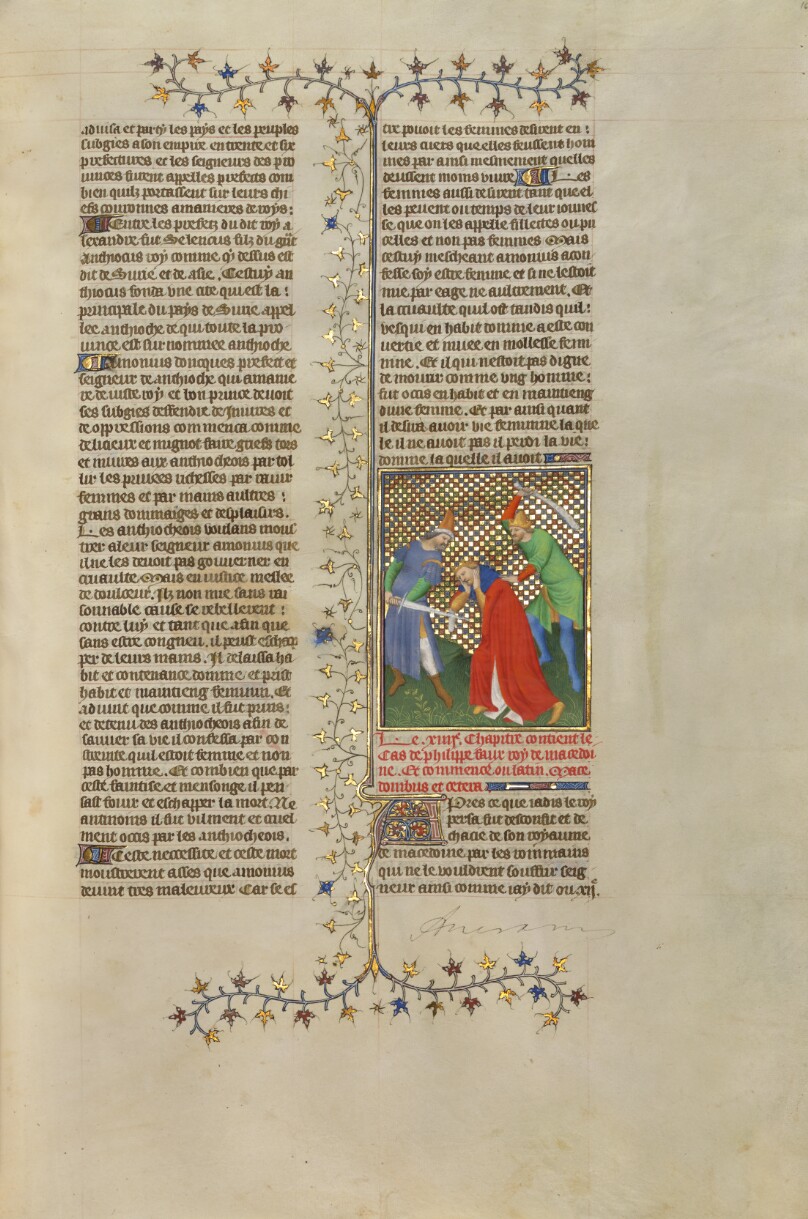 aduisa et party les pays et les peuples
subgies a son empire en trente et six
prefectures et les seigneurs des pro
uinces furent appelles prefects com
bien quilz portassent sur leurs chi
efs couronnes a manieres de roys:
Entre les prefetz du dit roy a
lexandre fut Seleucus filz du gnt
anthiocus roy comme dessus est
dit de Surie et de asie. Cestuy an
thiocus fonda vne cite qui est la:
principale du pays de Surie appel
lee anthioche de qui toute la pro
uince est surnommee anthioche
Amonius doncques prefect et
seigneur de anthioche qui a maine
re de iuste roy et bon prince deuoit
ses subgies deffendre de iniures et
de oppressions commenca comme
delicieux et mignot faire griefs tors
et iniures aux anthiocheois par tol
lir les priuees richesses par rauir
femmes et par mains aultres:
grans dommaiges et desplaisirs.
Les anthiocheois voulans mons
trer a leur seigneur amonius que
il ne les deuoit pas gouuerner en
cruaulte Mais en iustice meslee
de doulceur. Ilz non mie sans rai
sonnable cause se rebellerent:
contre luy et tant que afin que
sans estre congneu il peust eschap
per de leurs mains. Il delaissa ha
bit et contenance domme et prist
habit et maintieng feminin. Et
aduint que comme il fut prins:
et detenu des anthiocheois afin de
sauuer sa vie il confessa par con
trainte quil estoit femme et non
pas homme. Et combien que par
ceste faintise et mensonge il pen
sast fouir et eschapper la mort. Ne
antmoins il fut vilment et cruel
ment occis par les anthiocheois.
Ceste necessite et ceste mort
monstrerent asses que amonius
deuint tres maleureux Car se es
tre pouoit les femmes desirent en:
leurs cuers quelles feussent hom
mes par ainsi mesmement quelles
deussent moins viure Les
femmes aussi desirent tant que el
les peuent ou temps de leur iounes
se que on les appelle fillettes ou pu
celles et non pas femmes Mais
cestuy mescheant amonius a con
fesse soy estre femme et si ne lestoit
mie par eage ne aultrement. Et
la cruaulte quil ost tandis quil:
vesqui en habit domme a este con
uertie et muee en mollesse femi
nine. Et il qui nestoit pas digne
de mourir comme vng homme:
fut occis en habit et en maintieng
dune femme. Et par ainsi quant
il desira auoir vie feminine la que
le il ne auoit pas il perdi la vie:
domme la quelle il auoit
Le .xiiije. Chapitre contient le
Cas de philippe faux roy de macedoi
ne. Et commence ou latin. Mace
donibus et cetera
Apres ce que iadis le roy
persa fut desconfit et de
chacie de son royaume
de macedoine par les rommains
qui ne le vouldrent souffrir seig
neur ainsi comme iay dit ou xije.